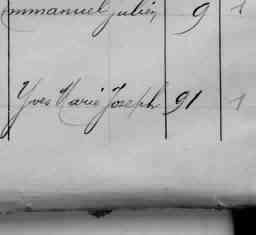 Emmanuel Julien 9 1
Yves Marie Joseph 91 1